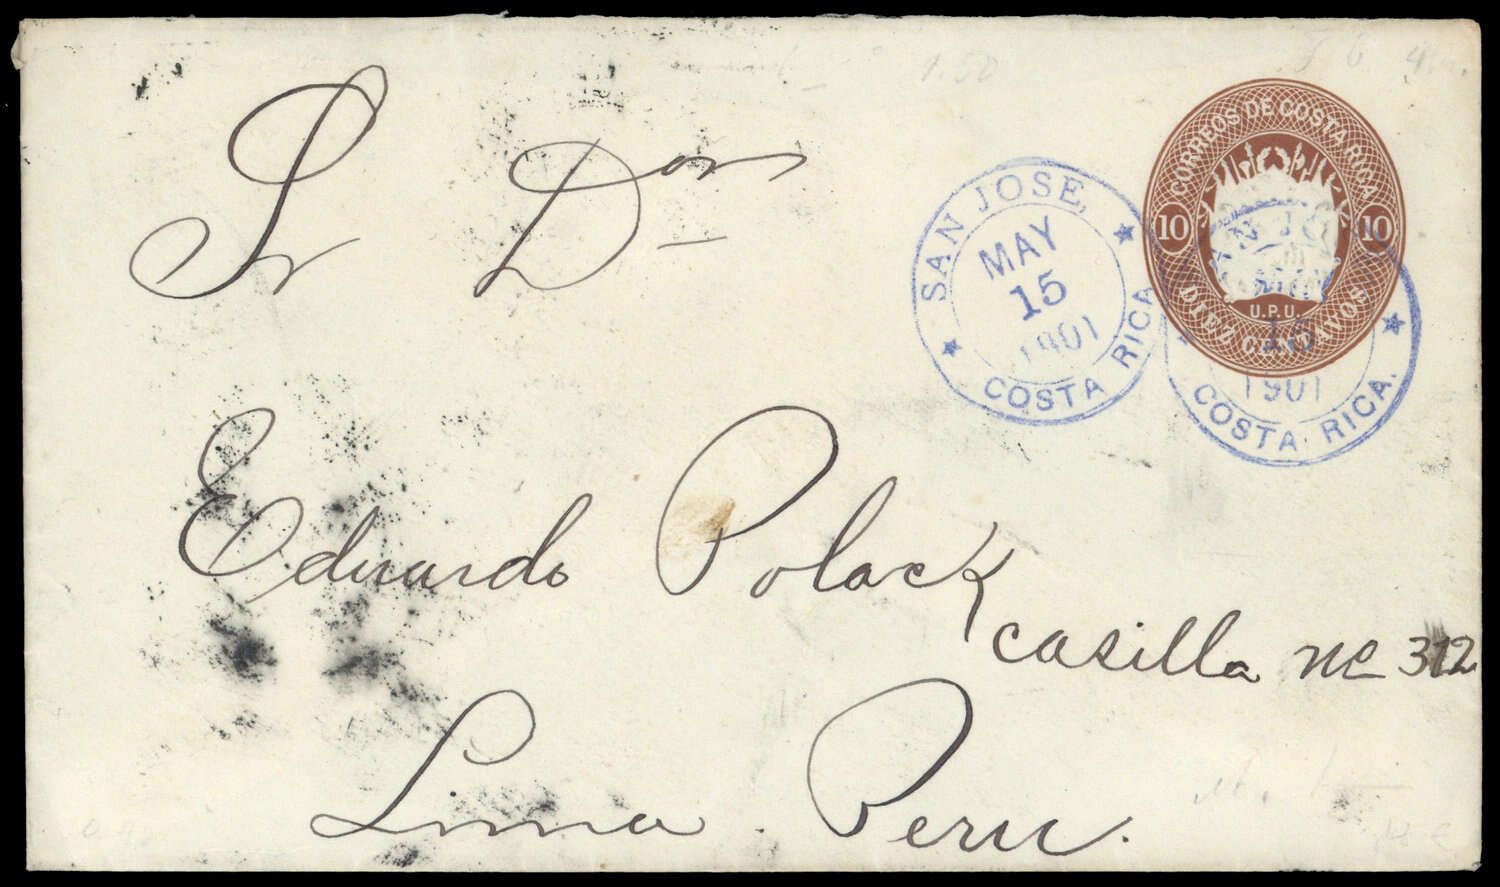 1.50
CORREOS DE COSTA RICA
10 10
U.P.U.
DIEZ CENTAVOS
SAN JOSE,
MAY
15
1901
COSTA RICA
15
1901
COSTA RICA.
Sr Don
Eduardo Polack
casilla No 312
Lima Peru.